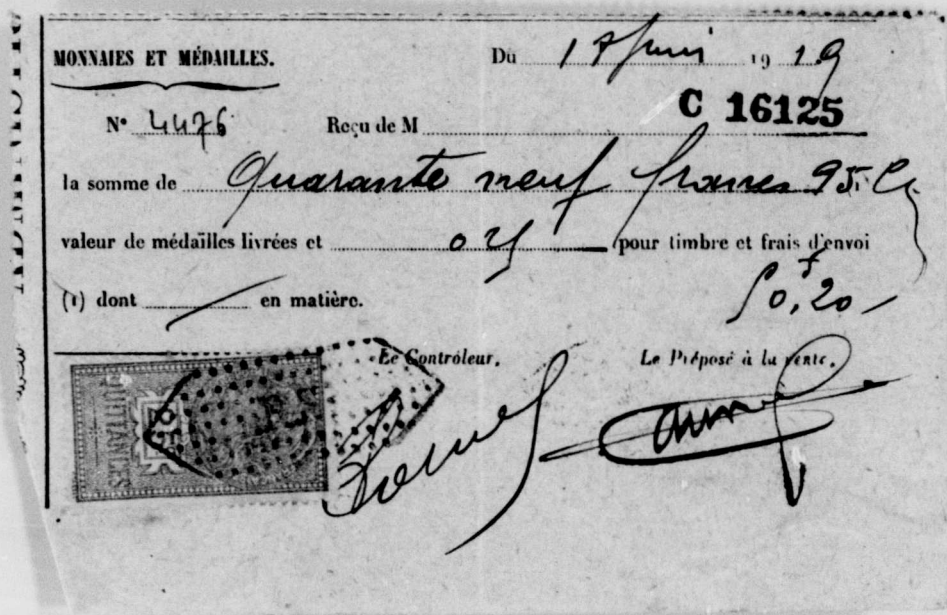 MONNAIES ET MÉDAILLES.
Du 17 Juin 1919
C 16125
N° 4476 Reçu de M
la somme de Quarante neuf francs 95 c
valeur de médailles livrées et 0 25 pour timbre et frais d'envoi
50f,20
(1) dont en matière.
Le Contrôleur, Le Préposé à la vente,
QUITTANCES